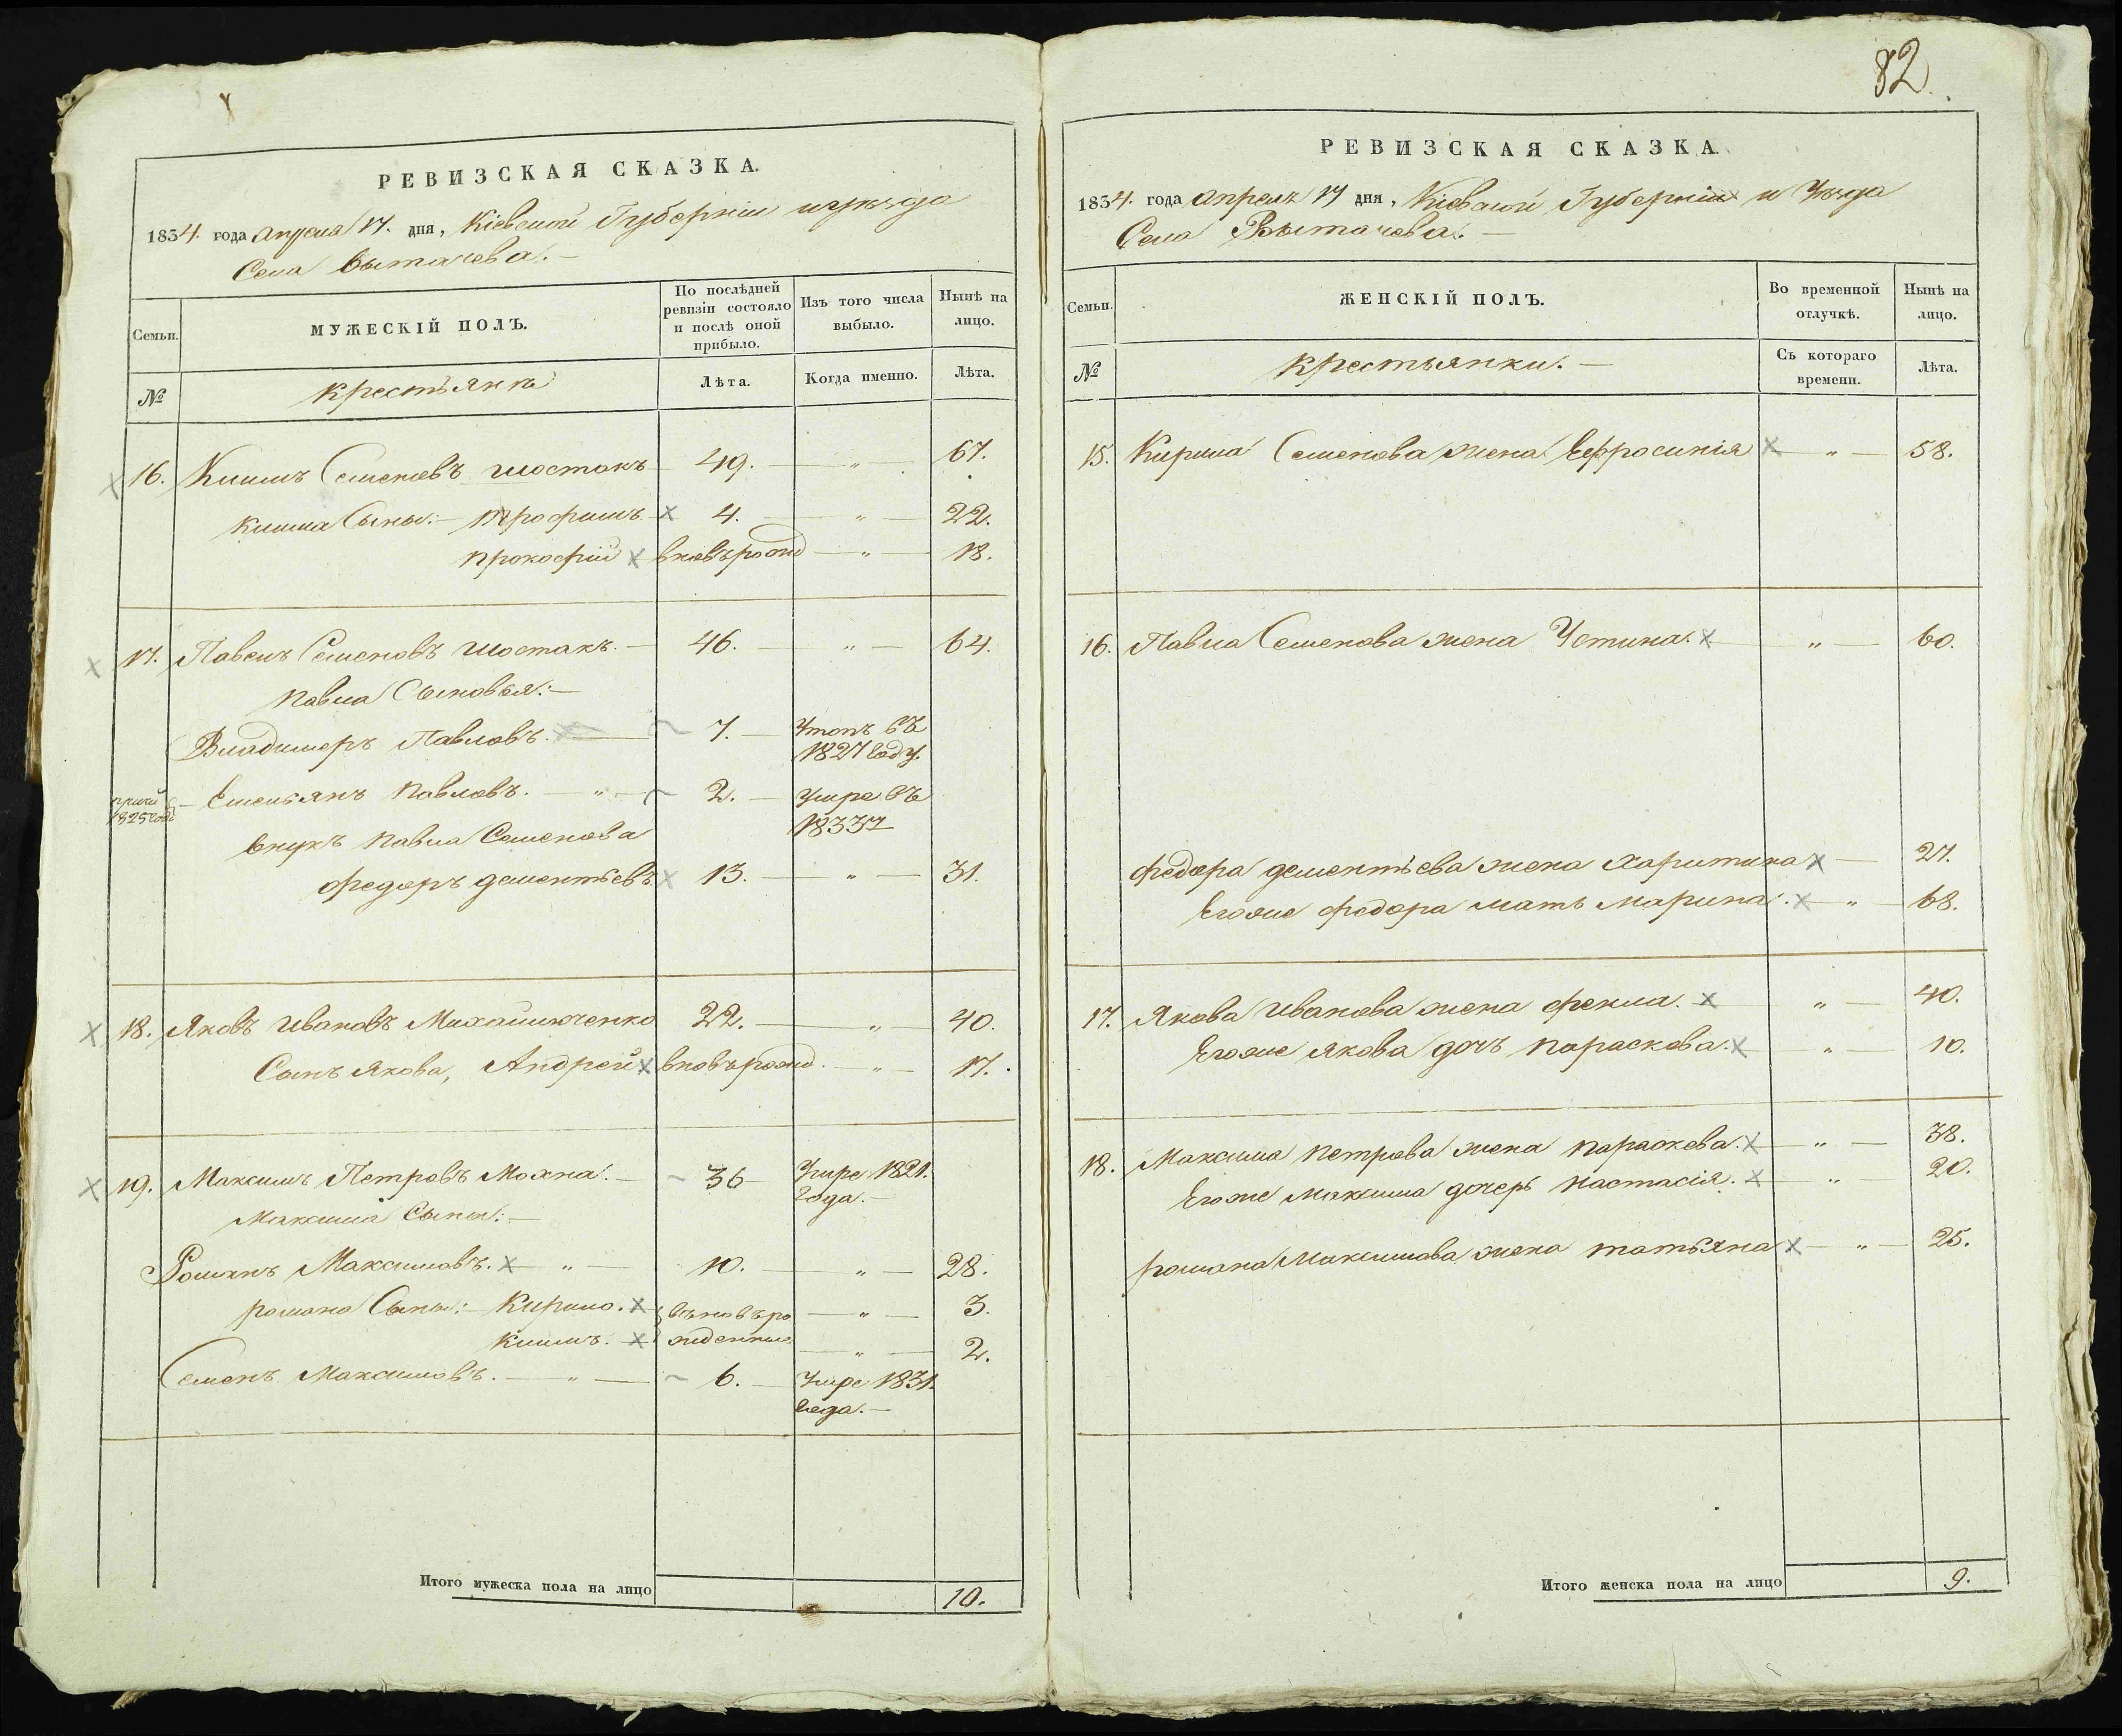 РЕВИЗСКАЯ СКАЗКА.
1834. года Апреля 17. дня, Кіевской Губерніи и уѣзда
Села Вытачева.
Семьи.
МУЖЕСКІЙ ПОЛЪ.
По послѣдней ревизіи состояло и послѣ оной прибыло.
Изъ того числа выбыло.
Нынѣ на лицо.
№
Крестьянѣ
Лѣта.
Когда именно.
Лѣта.
16. Климъ Семеновъ шостакъ 49. — „ 67.
Клима Сыны: Трофимъ 4. — „ — 22.
Прокофій вновь рожд — „ — 18.
17. Павелъ Семеновъ шостакъ. — 46. — „ — 64.
Павла Сыновья: —
Владимеръ Павловъ. 7. — Утопъ въ
1827 Году.
Емельянъ Павловъ. — „ — 2. — Умре въ
1825 Года
внукъ Павла Семенова
Федоръ дементьевъ 13. — „ — 31.
18. Яковъ Ивановъ Михайличенко 22. — „ 40.
Сынъ Якова, Андрей вновь рожд. — „ — 17.
19. Максимъ Петровъ Мохна. — 36 — Умре 1821.
Года. —
Максима Сыны: —
Романъ Максимовъ. — „ — 10. — „ — 28.
романа Сыны: Кирило. вьновь ро — „ — 3.
Климъ. жденные — „ — 2.
Семенъ Максимовъ. — „ — 6. — Умре 1831.
Года. —
Итого мужеска пола на лицо 10.
82
РЕВИЗСКАЯ СКАЗКА.
1834. года Апреля 17 дня, Кіевской Губерніи и Уѣзда
Села Вытачева. —
Семьи.
ЖЕНСКІЙ ПОЛЪ.
Во временной отлучкѣ.
Нынѣ на лицо.
№
Крестьянки. —
Съ котораго времени.
Лѣта.
15. Кирила Семенова жена Ефросинія „ — 58.
16. Павла Семенова жена Устина. „ — 60.
федора дементьева жена Харитина — 27.
Егоже федора мать Марина. — „ — 68.
17. Якова Иванова жена фекла. „ — 40.
Егоже Якова дочь Параскева. — „ — 10.
18. Максима Петрова жена Параскева. — „ — 38.
Егоже Максима дочерь Настасія. — „ — 20.
романа Максимова жена татьяна — „ — 25.
Итого женска пола на лицо 9.